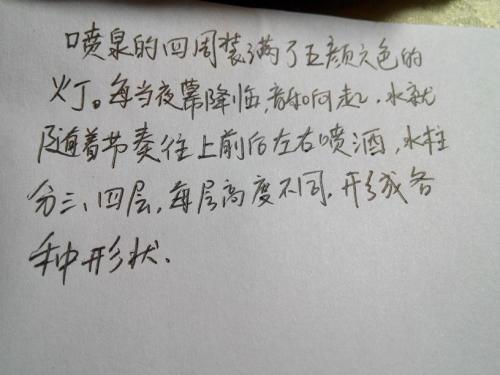 喷泉的四周装满了五颜六色的
灯。每当夜幕降临,音响响起,水就
随着节奏往上前后左右喷洒,水柱
分三、四层,每层高度不同,形成各
种形状.